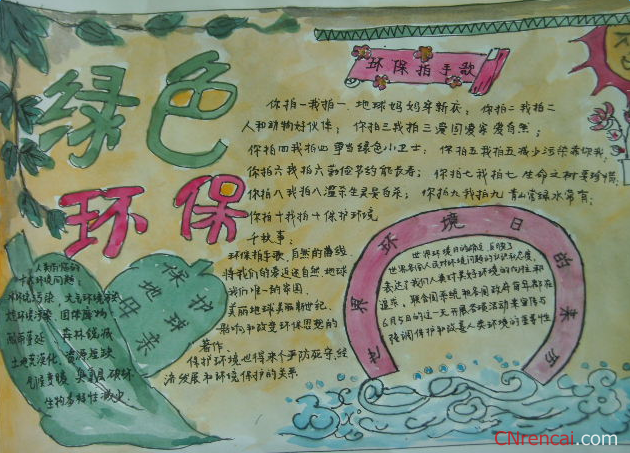 绿色
环保
环保拍手歌
你拍一我拍一 地球妈妈穿新衣; 你拍二我拍二
人和动物好伙伴; 你拍三我拍三 爱国爱家爱自然;
你拍四我拍四 争当绿色小卫士; 你拍五我拍五 减少污染
你拍六我拍六 勤俭节约能长寿; 你拍七我拍七 生命之树要珍惜
你拍八我拍八 滥杀生灵 你拍九我拍九 青山常绿水常有;
你拍十我拍十 保护环境
环保拍手歌,自然的
将我们的 自然 地球
我们唯一的家园,
美丽地球美丽新世纪.
影响和改变环保思想的
著作.
保护环境也得来个严防死守,经
济发展和环境保护的关系
保护
地球
母亲
人类面临的
十大环境问题:
大气环境
海洋污染, 固体废物
森林锐减
土地荒漠化, 资源短缺
气候变暖 臭氧层破坏
生物多样性减少
世界环境日的来历
世界环境日的确立,反映了
世界各国人民对环境问题的认识和态度,
表达了我们人类对美好环境的向往和
追求, 联合国系统和各国政府每年都在
6月5日的这一天开展各项活动来宣传与
强调保护和改善人类环境的重要性
CNrencai.com